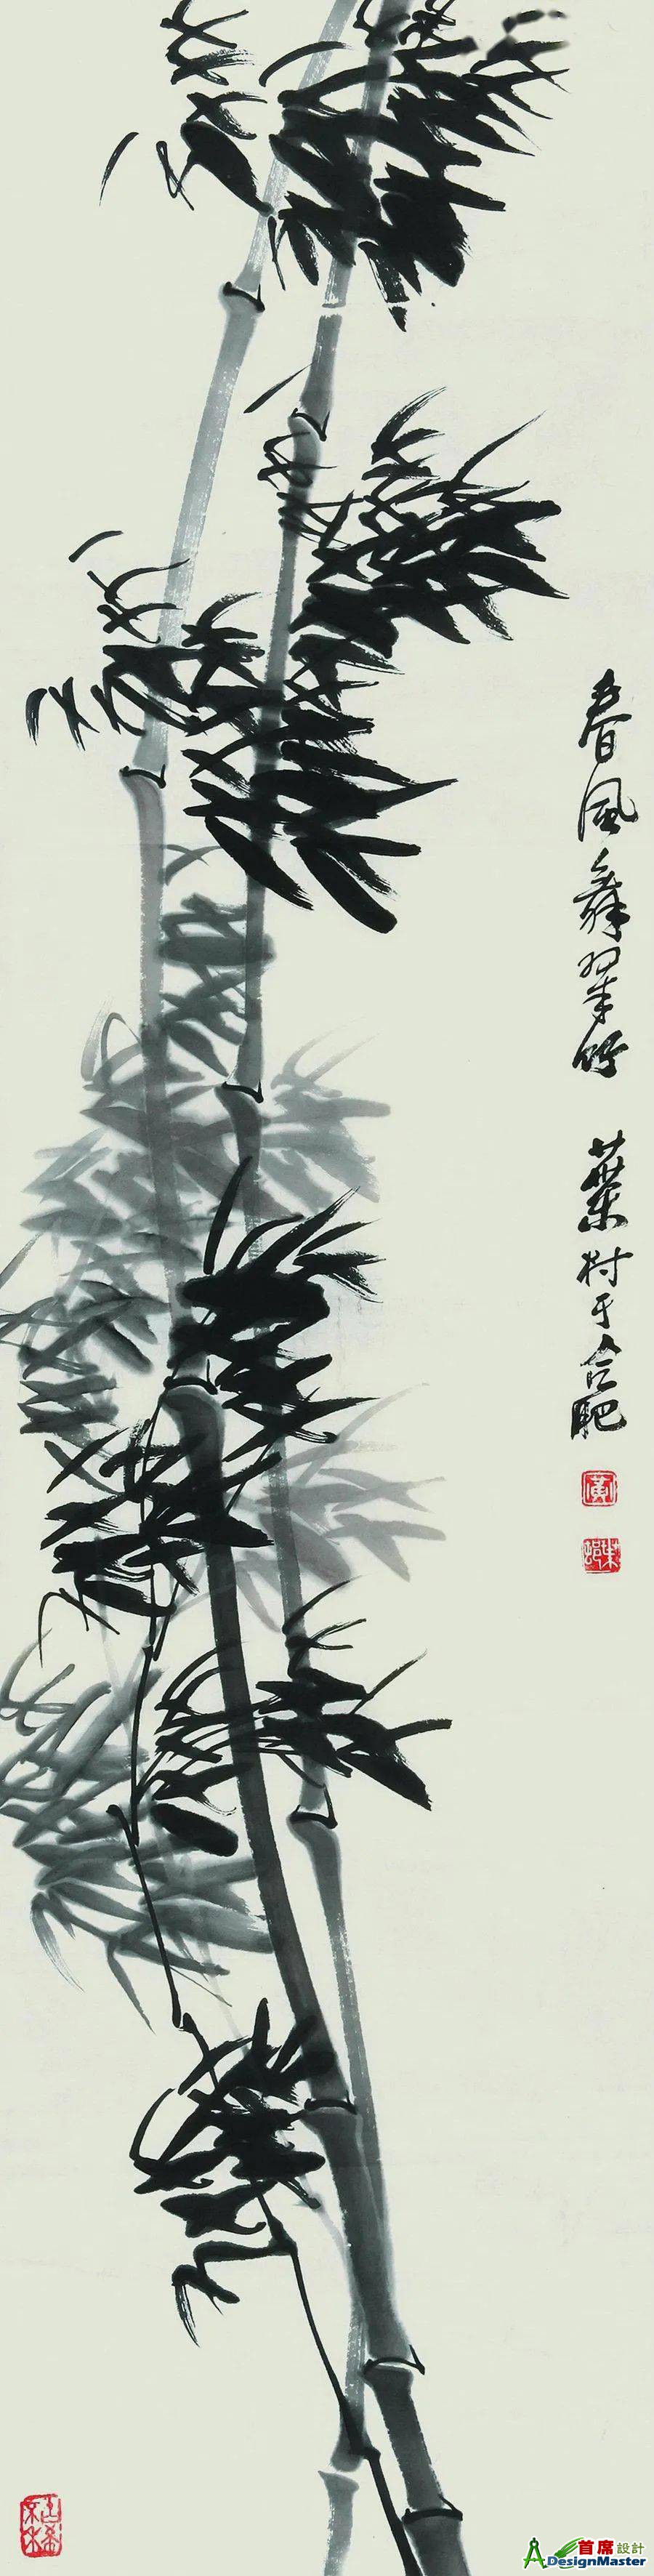 春風舞翠竹
葉村于合肥
首席設計
ADesignMaster